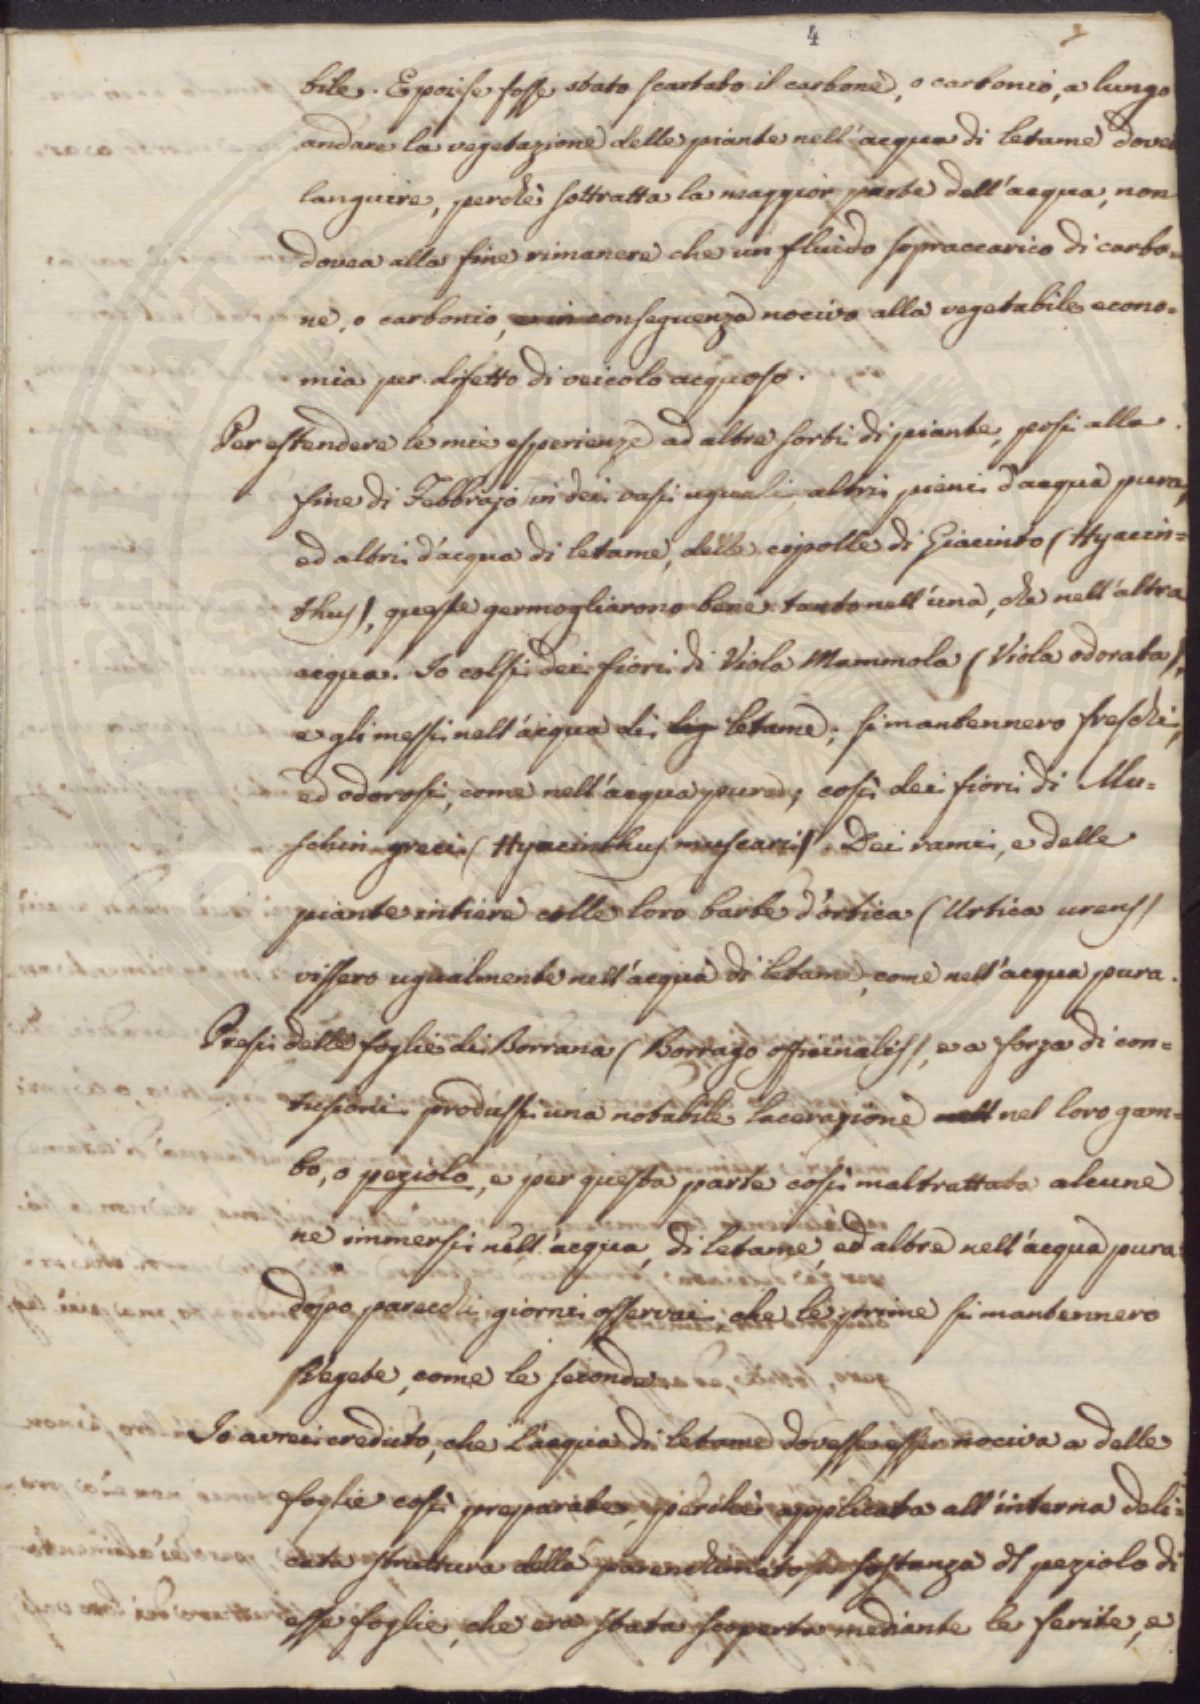 4
bile. E poi se fosse stato scartato il carbone, o carbonio, a lungo
andare la vegetazione delle piante nell'acqua di letame dovea
languire, perchè sottratta la maggior parte dell'acqua, non
dovea alla fine rimanere che un fluido sopraccarico di carbo=
ne, o carbonio, e in conseguenza nocivo alla vegetabile econo=
mia per difetto di veicolo acquoso.
Per estendere le mie esperienze ad altre sorti di piante, posi alla
fine di Febbrajo in dei vasi uguali, altri pieni d'acqua pura,
ed altri d'acqua di letame, delle cipolle di Giacinto (Hyacin=
thus), queste germogliarono bene tanto nell'una, che nell'altra
acqua. Io colsi dei fiori di Viola Mammola (Viola odorata),
e gli messi nell'acqua di letame; si mantennero freschi,
ed odorosi, come nell'acqua pura; così dei fiori di Mu=
schin greci (Hyacinthus muscari). Dei rami, e delle
piante intiere colle loro barbe d'ortica (Urtica urens)
vissero ugualmente nell'acqua di letame, come nell'acqua pura.
Presi delle foglie di Borrana (Borrago officinalis), e a forza di con=
tusioni produssi una notabile lacerazione nel loro gam=
bo, o peziolo, e per questa parte così maltrattata alcune
ne immersi nell'acqua di letame, ed altre nell'acqua pura
dopo parecchi giorni osservai, che le prime si mantennero
vegete, come le seconde.
Io avrei creduto, che l'acqua di letame dovesse esser nociva a delle
foglie così preparate, perchè applicata all'interna deli=
cata struttura della parenchimatosa sostanza del peziolo di
esse foglie, che era stata scoperta mediante le ferite, e